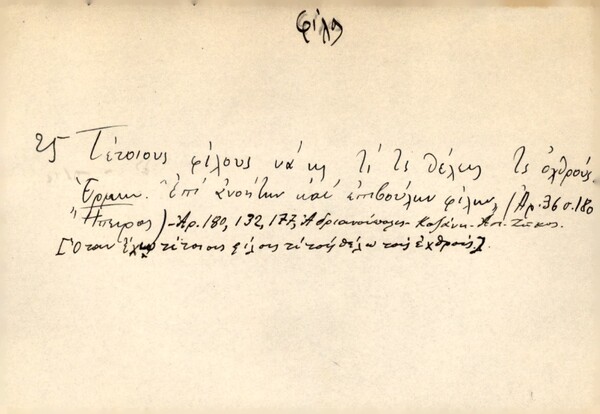 φίλος
25 Τέτοιους φίλους νά 'χῃς τί τς θέλεις τς ὀχθρούς.
Ἑρμην. Ἐπί ἀνοήτων καί ἐπιβούλων φίλων (Ἀρ. 36 σ. 180
Ἤπειρος) - Ἀρ. 180, 132, 177, Ἀδριανούπολις - Κοζάνη -
[Ὅταν ἔχω τέτοιους φίλους τί τούς θέλω τούς ἐχθρούς.]